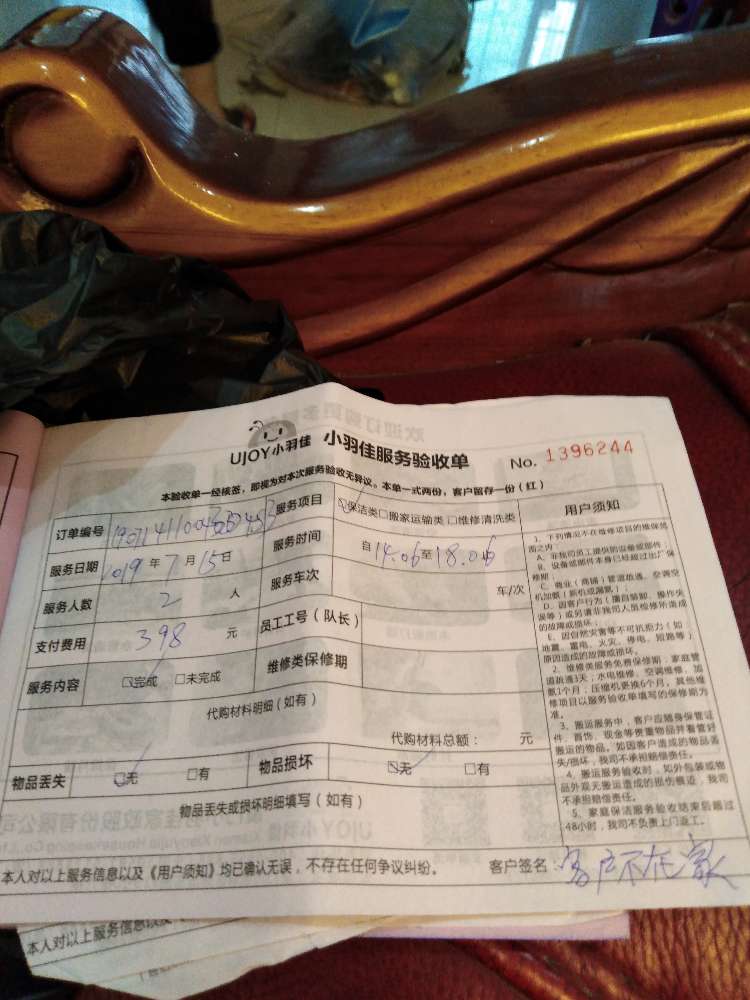 UJOY小羽佳 小羽佳服务验收单 No. 1396244
本验收单一经核签，即视为对本次服务验收无异议。本单一式两份，客户留存一份（红）
订单编号
服务项目 ☑保洁类□搬家运输类□维修清洗类
服务日期 2019 年 7 月 15 日
服务时间 自 14.06 至 18.06
服务人数 2 人
服务车次 车/次
支付费用 398 元
员工工号（队长）
服务内容 ☑完成 □未完成
维修类保修期
代购材料明细（如有）
代购材料总额： 元
物品丢失 ☑无 □有
物品损坏 ☑无 □有
物品丢失或损坏明细填写（如有）
用户须知
1、下列情况不在维修项目的维保范
围之内：
A、非我司员工提供的设备或部件；
B、设备或部件本身已经超过出厂保
修期；
C、商业（商铺）管道疏通、空调空
机加氟（新机或漏氟）；
D、因客户行为（擅自装卸、操作失
误等）或另请非我司人员检修所造成
的故障或损坏；
E、因自然灾害等不可抗拒力（如：
地震、雷电、火灾、停电、短路等）
原因造成的故障或损坏。
2、维修类服务免费保修期：家庭管
道疏通3天；水电维修、空调维修、加
氟1个月；压缩机更换6个月。其他维
修项目以服务验收单填写的保修期为
准。
3、搬运服务中，客户应随身保管证
件、首饰、现金等贵重物品并看管好
搬运的物品。如因客户造成的物品丢
失/损坏，我司不承担赔偿责任。
4、搬运服务验收时，如外包装或物
品外观无搬运造成的损伤痕迹，我司
不承担赔偿责任。
5、家庭保洁服务验收结束后超过
48小时，我司不负责上门返工。
本人对以上服务信息以及《用户须知》均已确认无误，不存在任何争议纠纷。 客户签名：客户不在家
本人对以上服务信息以及